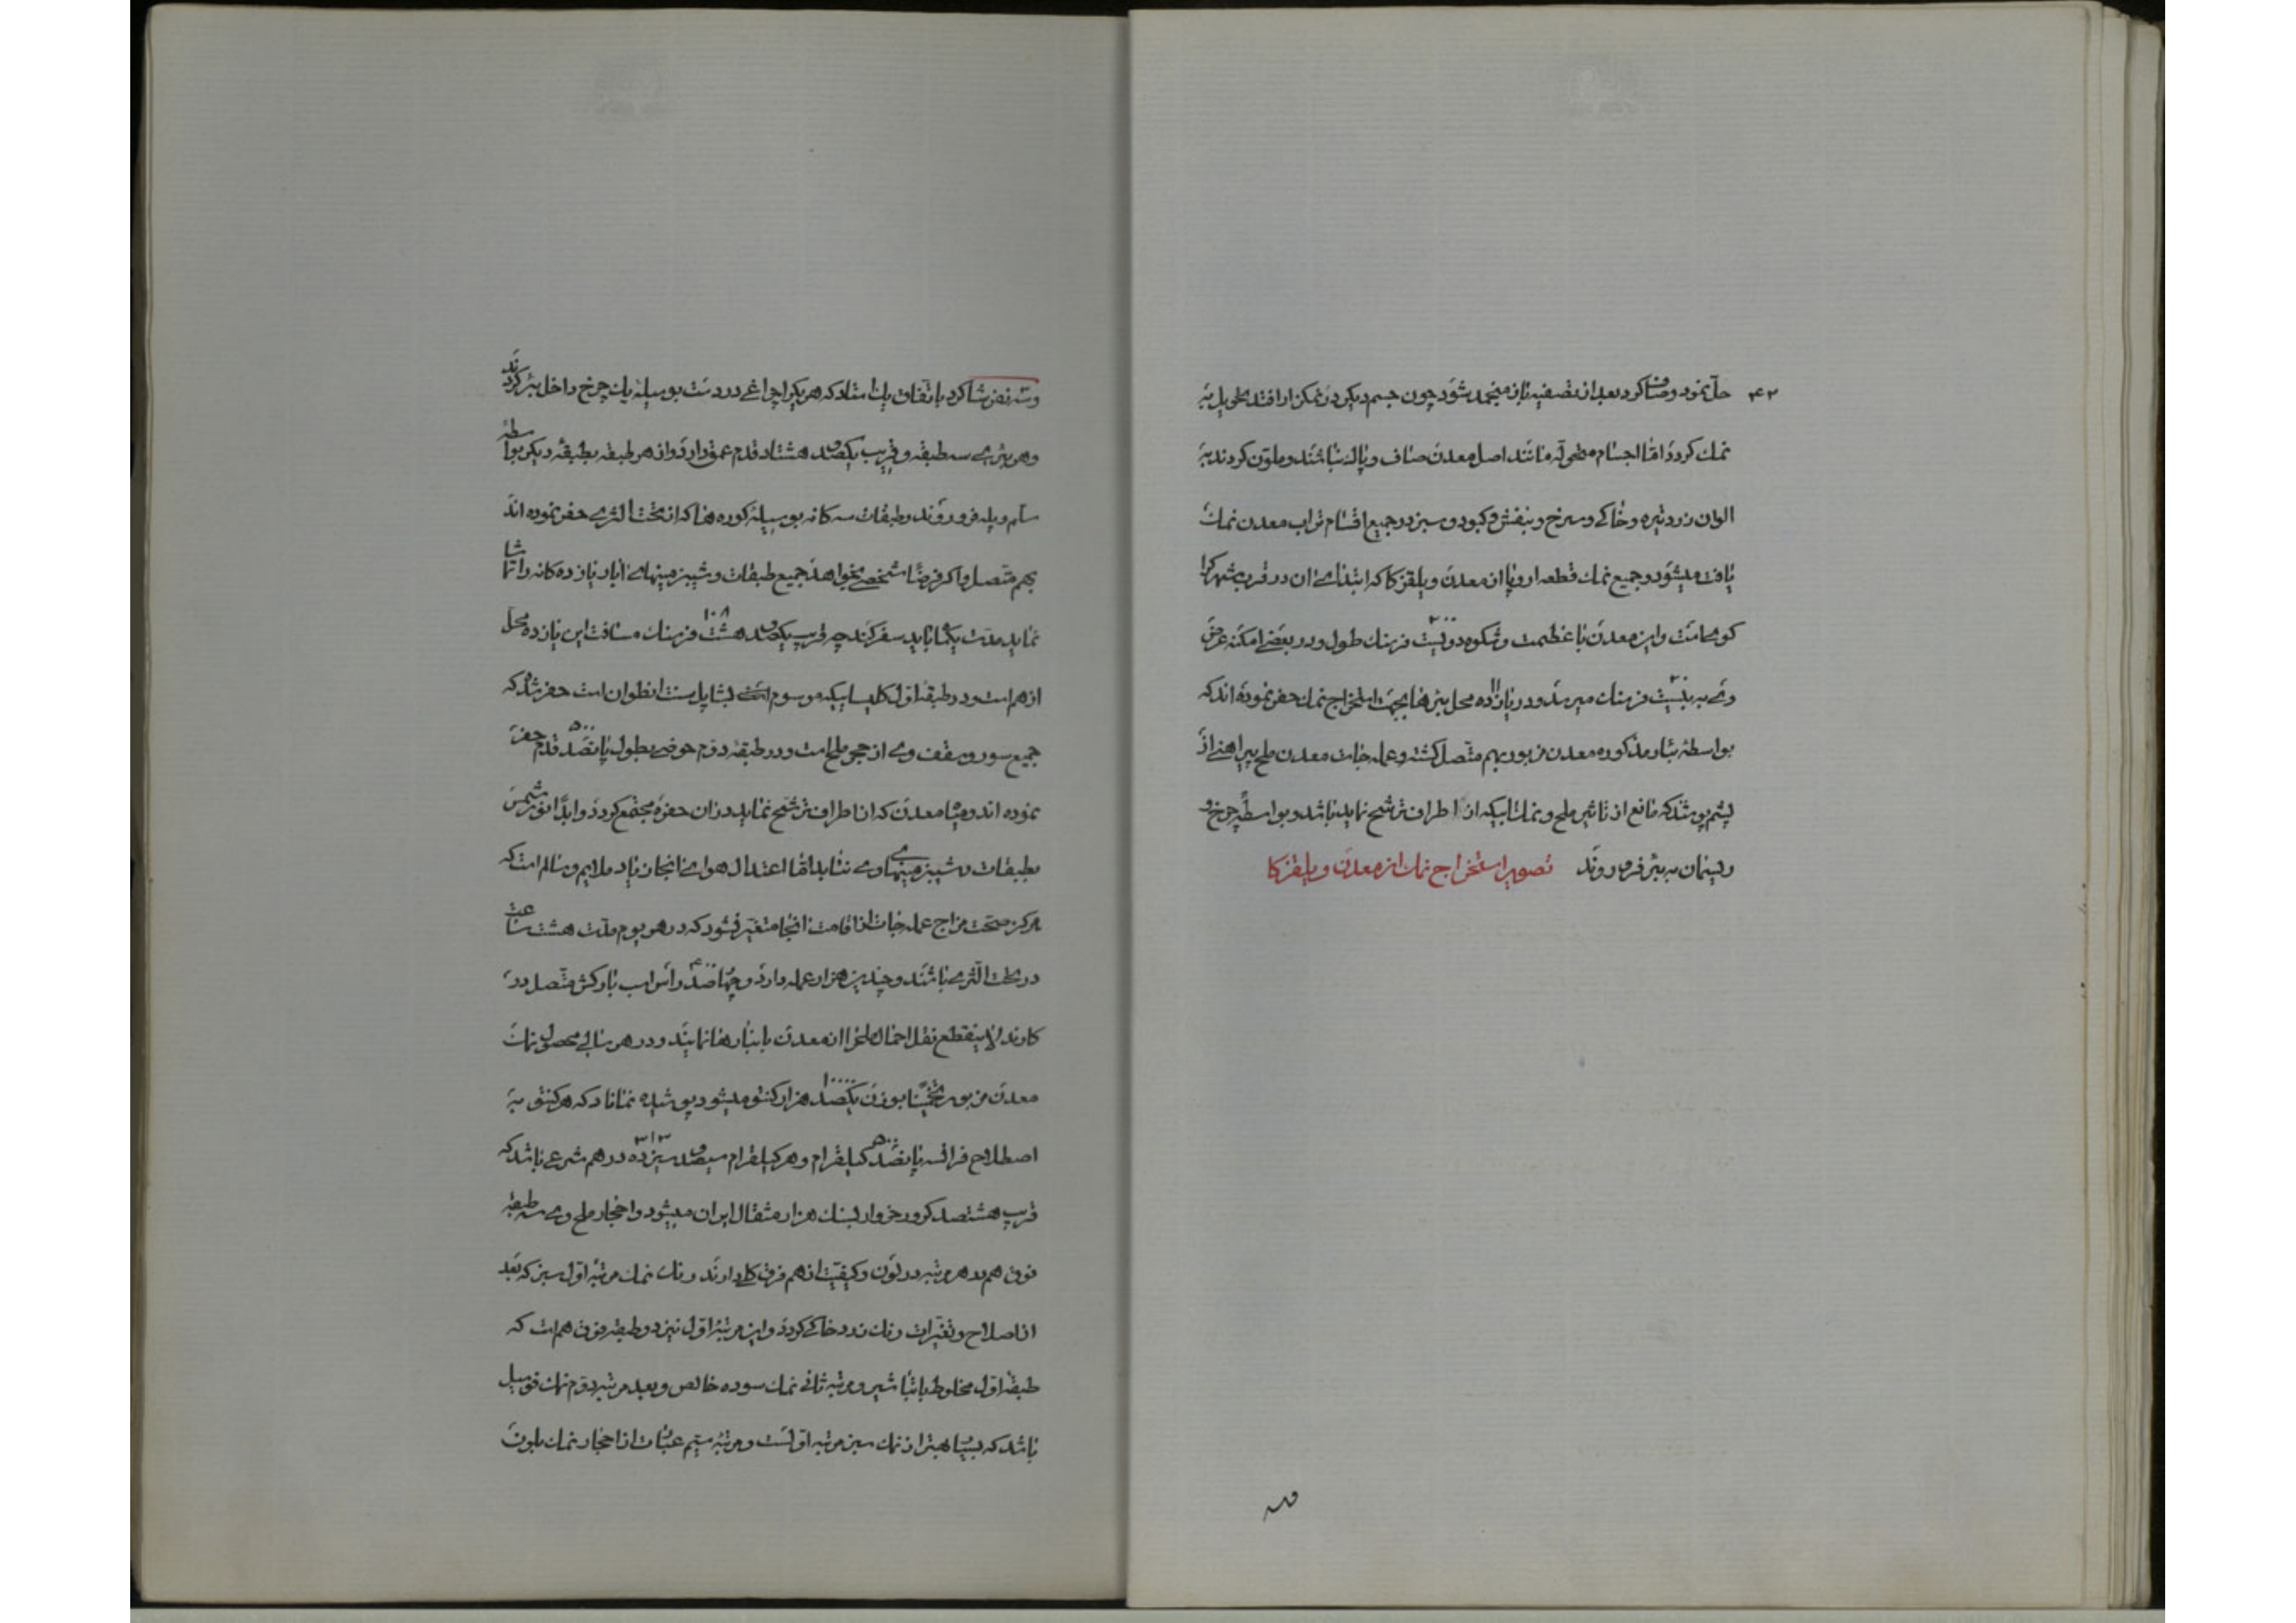 ۴۲ حل نمود و صاف کرد بعد از تصفیه باز منجمد شود چون جسم دیگر در نمکزار افتد مخیل به
نمک گردد اما اجسام مانند اصل معدن صاف و پاک نباشند و ملون گردند به
الوان زرد تیره و خاکی و سرخ و بنفش و کبود و سبز در جمیع اقسام تراب معدن نمک
یافت میشود و جمیع نمک قطعه اروپا از معدن ویلقزکا که ابتدای ان در قرب شهر
کوهیست و این معدن با عظمت و شکوه دویست ۲۰۰ فرسنک طول و در بعضی امکنه عرض
وی به بیست ۲۰ فرسنک میرسد و در یازده ۱۱ محل بئرها بجهت استخراج نمک حفر نموده اند که
بواسطه بئار مذکوره معدن مزبور بهم متصل کشته و عمله جات معدن ملح پیراهنی از
پشم پوشند که مانع از تاثیر ملح و نمک ابیکه از اطراف ترشح نماید باشد و بواسطه چرخ و
ریسمان به بئر فرو روند تصویر استخراج نمک از معدن ویلقزکا
وسه نفر شاکرد باتفاق یک استاد که هر یک را چراغی در دست بوسیله یک چرخ داخل بئر گردند
و هر بئری سه طبقه و قریب یکصد و هشتاد قدم عمق دارد و از هر طبقه بطبقه دیگر بواسطه
سلم و پله فرو روند و طبقات سه کانه بوسیله کوره ها که از تحت الثری حفر نموده اند
بهم متصل و اکر فرضًا شخصی بخواهد جمیع طبقات و شیب زمینهای ابار یازده کانه را تماشا
نماید مدت یکماه باید سفر کند چه قریب یکصد و هشت ۱۰۸ فرسنک مسافت این یازده محل
از هم است و در طبقه اول کلیسایی که موسوم است بشاپل سنت انطوان است حفر شده که
جمیع سور و سقف وی از حجر ملح است و در طبقه دوم حوضی بطول پانصد ۵۰۰ قدم حفر
نموده اند و میاه معدن که از اطراف ترشح نماید در ان حفره مجتمع گردد و ابدًا نور شمس
بطبقات و شیب زمینهای وی نتابد اما اعتدال هوای انجا زیاد ملایم و سالم است که
هرکز صحت مزاج عمله جات از اقامت انجا متغیر نشود که در هر یوم مدت هشت ساعت
در تحت الثری باشند و چندین هزار عمله دارد و چهارصد ۴۰۰ راس اسب بارکش متصل در
کارند لاینقطع نقل احمال ملح را از معدن بانبارها نمایند و در هر سالی محصول نمک
معدن مزبور تخمینًا بوزن یکصد هزار کنتو میشود پوشیده نماناد که هر کنتو به
اصطلاح فرانسه پانصد ۵۰۰ کیلقرام و هر کیلقرام سیصد و سیزده ۳۱۳ درهم شرعی باشد که
قریب هشتصد کرور خروار بسنک هزار مثقال ایران میشود و احجار ملح وی سه طبقه
فوق هم و هر مرتبه در لون و کیفیت از هم فرق کلی دارند رنک نمک مرتبه اول سبز که بعد
از اصلاح و تغیرات رنک زرد خاکی گردد و این مرتبه اول نیز دو طبقه فوق هم است که
طبقه اول مخلوط با تباشیر و مرتبه ثانی نمک سوده خالص و بعد مرتبه دوم نمک
باشد که بسیار بهتر از نمک سبز مرتبه اولست و مرتبه سیم عبارت از احجار نمک بلورن